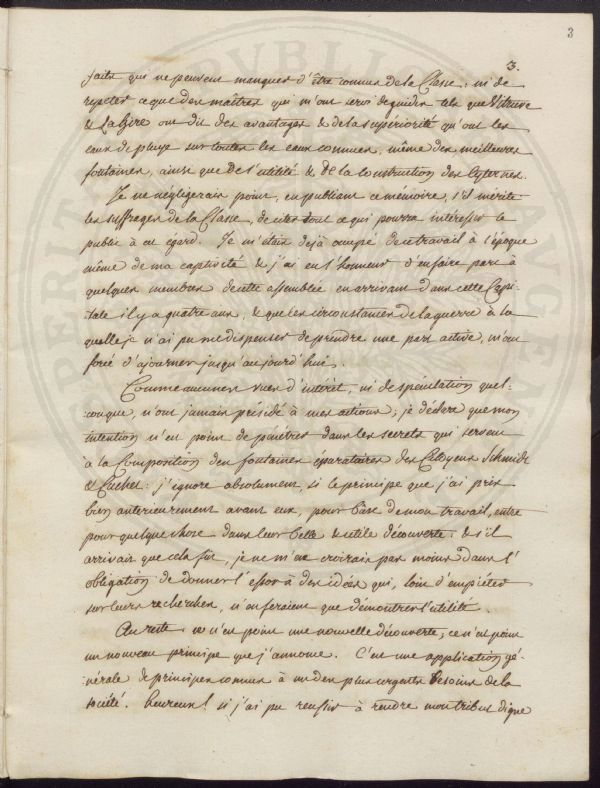 3
3.
faits qui ne peuvent manquer d'être connus de la Classe; ni de
repeter ce que des maîtres qui m'ont servi de guides tels que Vitruve
& La hire ont dit des avantages & de la supériorité qu'ont les
eaux de pluye sur toutes les eaux connues, même des meilleures
fontaines, ainsi que de l'utilité & de la construction des Cyternes.
Je ne négligerais point, en publiant ce mémoire, s'il mérite
les suffrages de la Classe, de citer tout ce qui pourra intéresser le
public à cet égard. Je m'étais dejà occupé de ce travail à l'époque
même de ma captivité & j'ai eu l'honneur d'en faire part à
quelques membres de cette assemblée en arrivant dans cette Capi-
tale il y a quatre ans, & que les circonstances de la guerre à la
quelle je n'ai pu me dispenser de prendre une part active, m'ont
forcé d'ajourner jusqu'aujourd'hui.
Comme aucunes vues d'intérêt, ni de spéculation quel-
conque, n'ont jamais présidé à mes actions; je déclare que mon
intention n'est point de pénétrer dans les secrets qui servent
à la Composition des fontaines épuratoires des Citoyens Schmidt
& Cuchet: j'ignore absolument, si le principe que j'ai pris
bien anterieurement avant eux, pour base de mon travail, entre
pour quelque chose dans leur belle & utile découverte: & s'il
arrivait que cela fut, je ne m'en croirais pas moins dans l'
obligation de donner l'essor à des idées qui, loin d'empiéter
sur leurs recherches, n'en feraient que démontrer l'utilité.
Au reste ce n'est point une nouvelle découverte; ce n'est point
un nouveau principe que j'annonce. C'est une application gé-
nérale de principes connus à un des plus urgents besoins de la
société. heureux! si j'ai pu reussir à rendre mon tribut digne